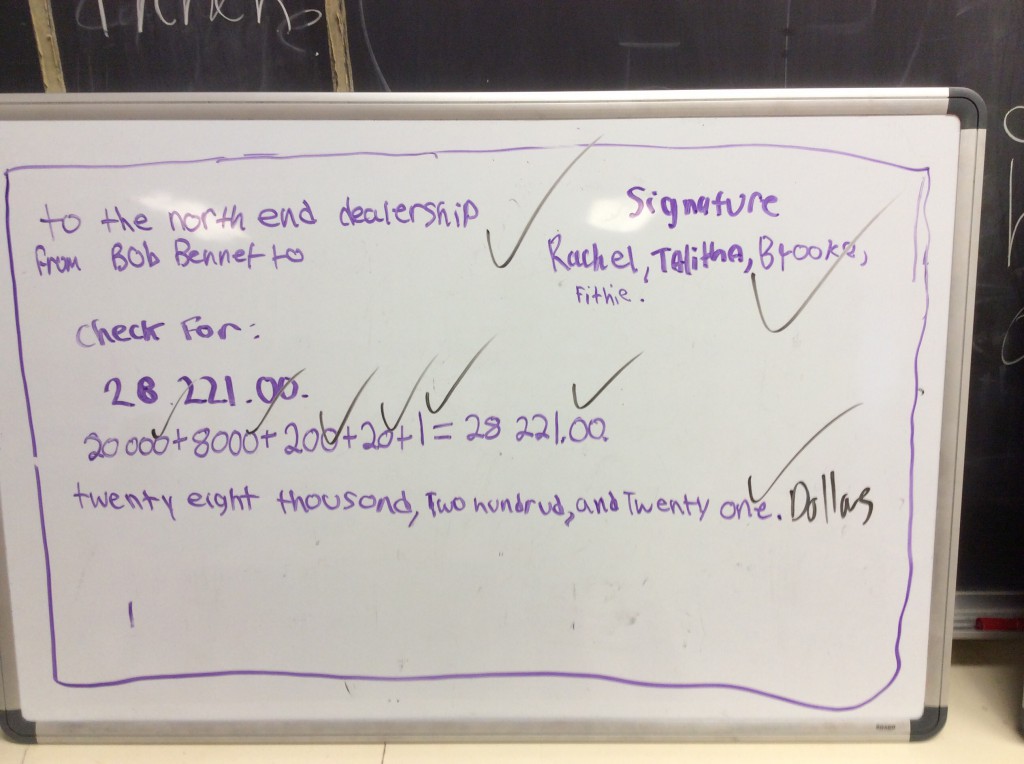 to the north end dealership
from Bob Bennet to
Signature
Rachel, Talitha, Brooke,
Fithie.
Check For:
28 221.00.
20 000+8000+200+20+1=28 221.00.
twenty eight thousand, Two hundrud, and Twenty one. Dollars